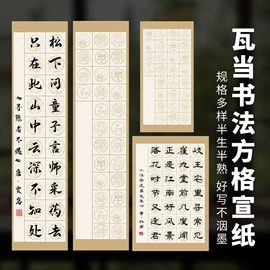 瓦当书法方格宣纸
规格多样半生半熟
好写不洇墨
松下问童子言师采药去
只在此山中云深不知处
岐王宅里寻常见
崔九堂前几度闻
正是江南好风景
落花时节又逢君